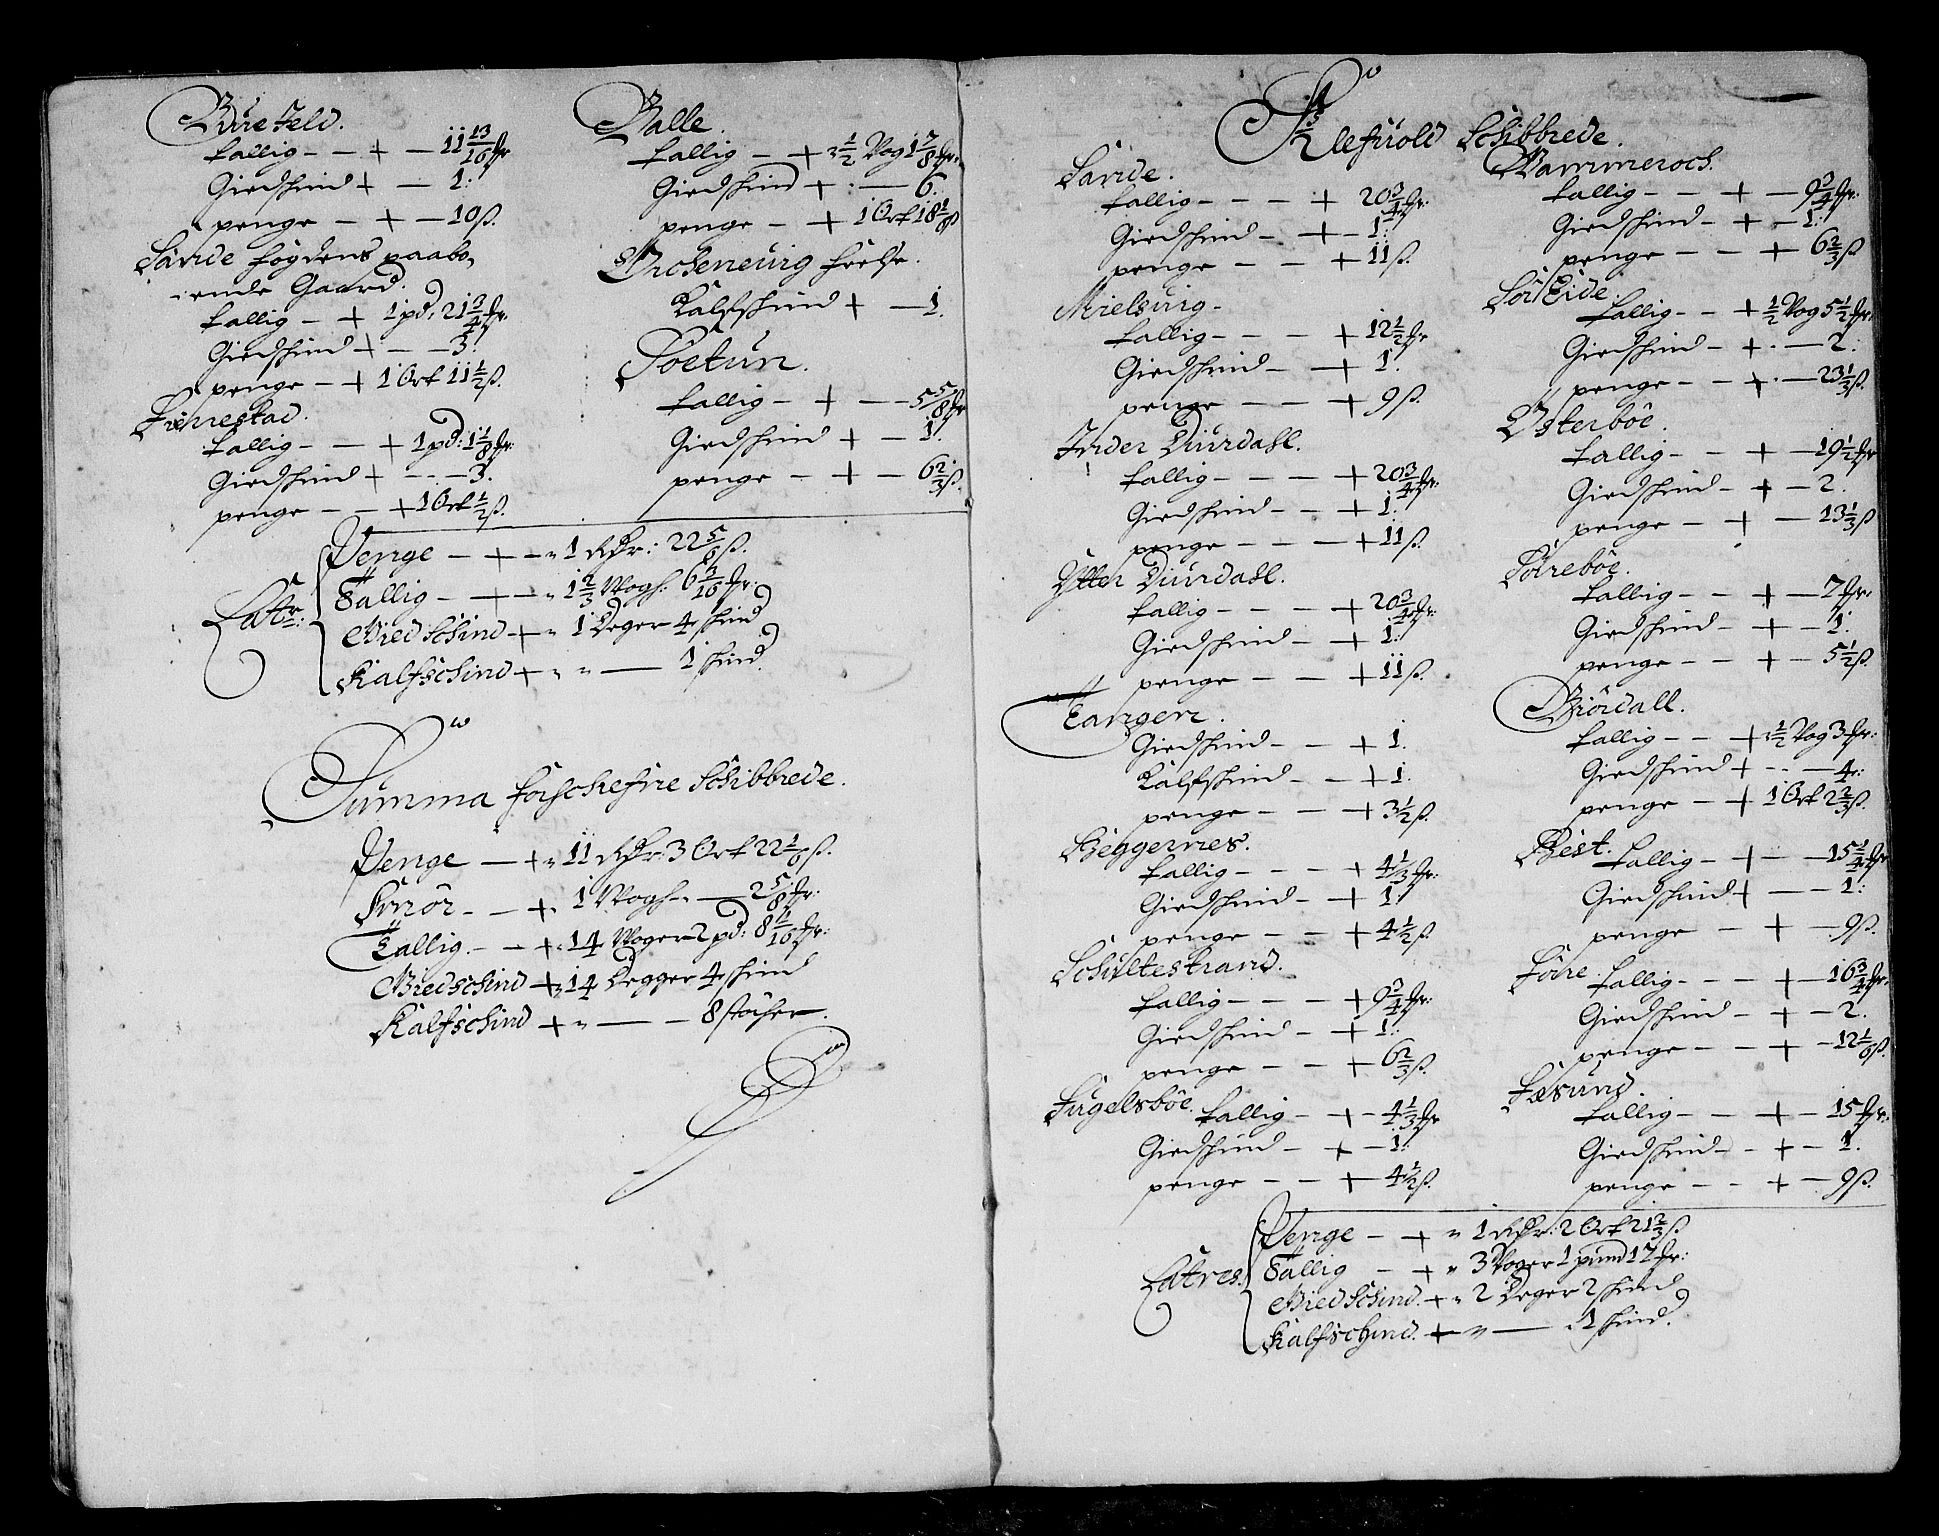 Burefeld.
tallig - - + - 11 13/16 fr
Giedschind + - 1:
penge - + - 10 ß.
Sande fogdens paabo,
ende Gaard.
tallig - + 1 pd: 21 3/4 fr.
Giedschind + - - 3:
penge - + 1 Ort 11 1/2 ß.
tallig - - + 1 pd: 1 1/8 fr:
Giedschind + - - 3.
penge - - + 1 Ort 1/2 ß.
Balle.
tallig - + 1/2 Vog 1 7/8 fr:
Giedschind + : - 6.
penge - + 1 Ort 18 1/8 ß
Kalfschind + - 1.
Soetun.
tallig - + - 5 5/8 fr
Giedschind + - 1.
penge - + - 6 2/3 ß.
Latr:
Penge - + - " 1 Rdr: 22 5/6 ß.
Tallig - + - " 1 2/3 Wogh: 6 3/16 fr:
Gied Schind + " 1 Deger 4 schind
Kalfschind + " " - 1 schind.
Summa forschefne Schibbrede.
Penge - + " 11 Rdr: 3 Ort 22 1/6 ß.
Smör - - + " 1 Wogh - 2 5/8 fr:
Tallig - - + " 14 Woger 2 pd: 8 11/16 fr:
Giedschind + " 14 Degger 4 schind
Kalfschind + " - - 8 støcher.
Klefuold Schibbrede.
Sande.
tallig - - - + 20 3/4 fr:
Giedschind - + - 1:
penge - - + 11 ß.
Mielsuig -
tallig - - - + 12 1/2 fr
Giedschind - - + 1.
penge - - + 9 ß.
Inder Diurdall.
tallig - - - + 20 3/4 fr:
Giedschind - - + 1:
penge - - - + 11 ß.
Ytter Diurdall.
tallig - - - + 20 3/4 fr:
Giedschind - - + 1:
penge - - + 11 ß.
Tangen.
Giedschind - - + 1.
Kalfschind - - + 1.
penge - - - + 3 1/2 ß.
Beggernes.
tallig - - - + 4 1/3 fr:
Giedschind - - + 1:
penge - - + 4 1/2 ß.
Schiltestrand.
tallig - - - + 9 3/4 fr:
Giedschind - + 1:
penge - - + 6 2/3 ß.
Fugelsböe. tallig - + - 4 1/3 fr
Giedschind - + - 1:
penge - - + - 4 1/2 ß.
Wammeroch.
tallig - - + - 9 3/4 fr:
Giedschind - + - 1.
penge - - + 6 2/3 ß
Sör Eide.
tallig - - + 1/2 Vog 5 1/2 fr.
Giedschind - + - 2:
penge - - + - 23 1/3 ß.
Österböe.
tallig - - + - 19 1/2 fr
Giedschind - + - 2.
penge - - + - 13 1/3 ß
Söreböe.
tallig - - + - 7 fr.
Giedschind - + - 1.
penge - - + - 5 1/2 ß.
Giördall.
tallig - - + 1/2 Vog 3 fr:
Giedschind + - - 4:
penge - + 1 Ort 2 2/3 ß.
Best. tallig - + - 15 1/4 fr
Giedschind + - - 1:
penge - + - 9 ß.
Före. tallig - - + - 16 3/4 fr.
Giedschind - + - 2.
penge - - + - 12 1/6 ß.
Fæsund.
tallig - - + - 15 fr.
Giedschind - + - 1.
penge - - + - 9 ß.
Latres.
Penge - + " 1 Rdr: 2 Ort 21 2/3 ß
Tallig - + " 3 Woger 1 pund 17 fr:
Gied Schind. + " 2 Deger 2 schind
Kalfschind. + " - 1 schind.